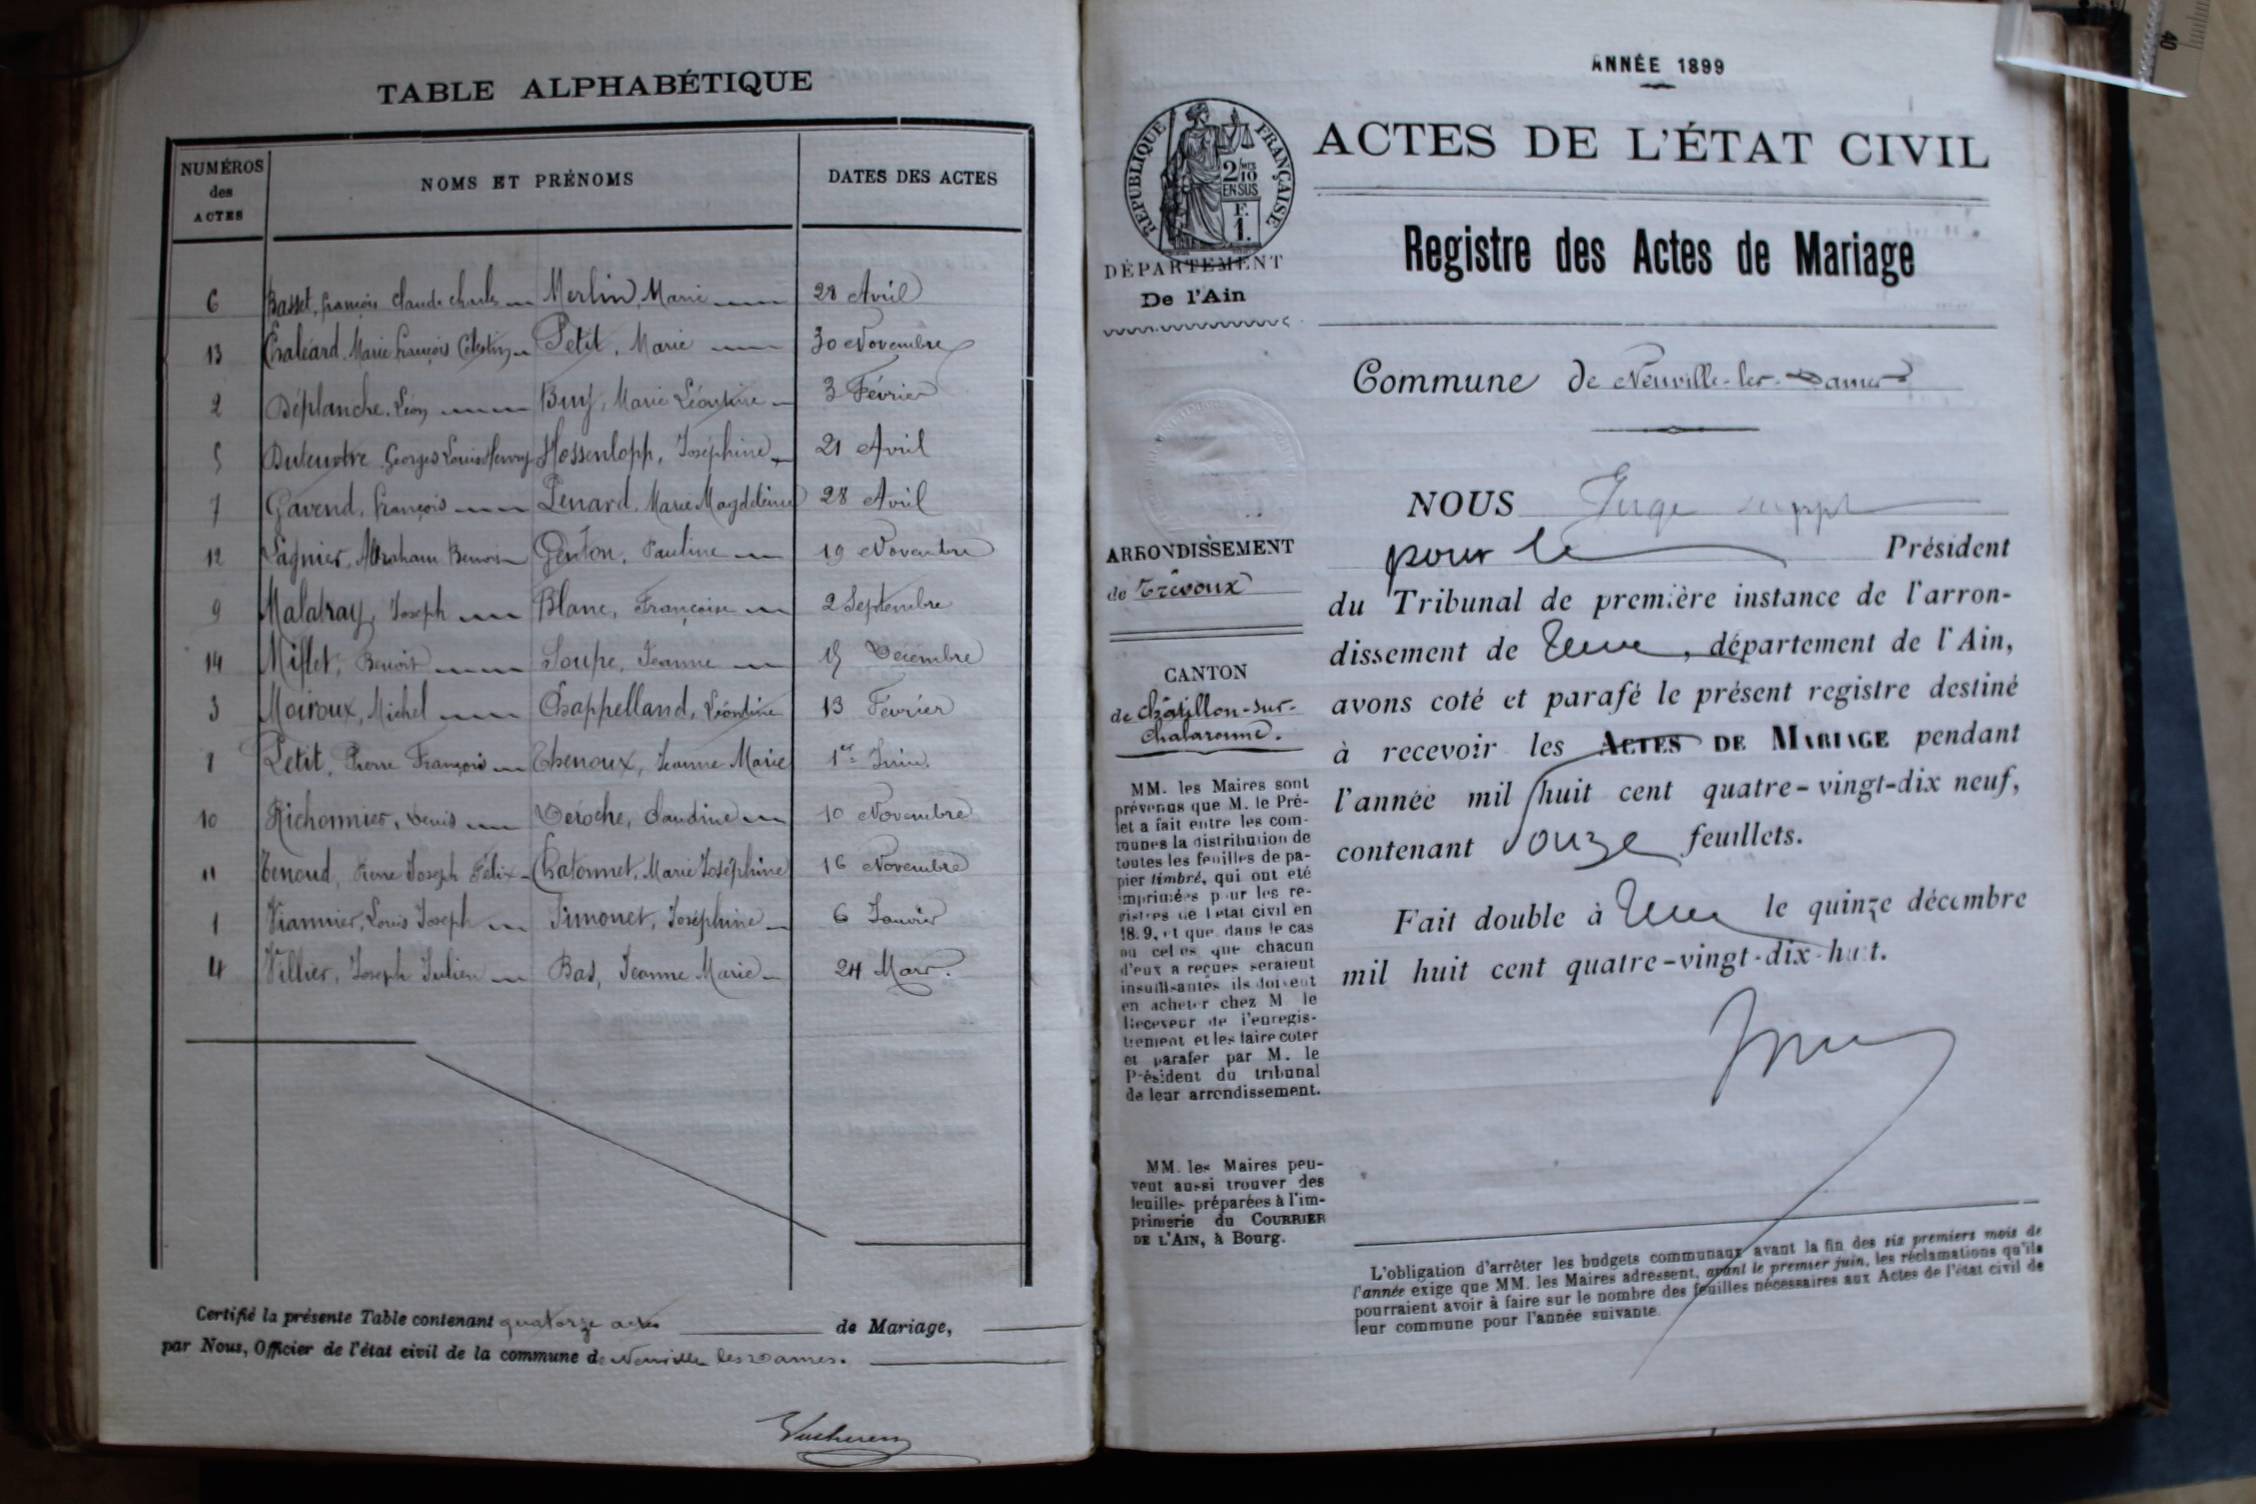 TABLE ALPHABÉTIQUE
NUMÉROS des ACTES
NOMS ET PRÉNOMS
DATES DES ACTES
6 Basset, François Claude Charles Merlin, Marie 28 Avril
13 Chaléard Marie François Célestin Petit, Marie 30 Novembre
2 Déplanche Léon Buy, Marie Léontine 3 Février
5 Duteurtre Georges Louis Henry Hossenlopp, Joséphine 21 Avril
7 Gavend, François Penard Marie Magdeleine 28 Avril
12 Lagnier, Abraham Benoit Genton, Pauline 19 Novembre
9 Malatray, Joseph Blanc, Françoise 2 Septembre
14 Millet, Benoit Soupe, Jeanne 15 Décembre
3 Moiroux, Michel Chappelland, Léontine 13 Février
Petit, Pierre François Thenoux, Jeanne Marie 1er Juin
10 Richonnier, Denis Deroche, Claudine 10 Novembre
11 Tenoud, Pierre Joseph Félix Chatonnet, Marie Joséphine 16 Novembre
1 Viannier, Louis Joseph Timonet, Joséphine 6 Janvier
4 Villier, Joseph Julien Bas, Jeanne Marie 24 Mars.
Certifié la présente Table contenant quatorze actes de Mariage,
par Nous, Officier de l'état civil de la commune de Neuville les Dames.
ANNÉE 1899
RÉPUBLIQUE FRANÇAISE
2/10 EN SUS
F. 1.
ACTES DE L'ÉTAT CIVIL
DÉPARTEMENT
De l'Ain
Registre des Actes de Mariage
Commune de Neuville-les-Dames
ARRONDISSEMENT
de Trévoux
CANTON
de Châtillon-sur-
Chalaronne.
MM. les Maires sont
prévenus que M. le Pré-
fet a fait entre les com-
munes la distribution de
toutes les feuilles de pa-
pier timbré, qui ont été
imprimées pour les re-
gistres de l'état civil en
1899, et que dans le cas
où celles que chacun
d'eux a reçues seraient
insuffisantes ils doivent
en acheter chez M. le
Receveur de l'enregis-
trement et les faire coter
et parafer par M. le
Président du tribunal
de leur arrondissement.
MM. les Maires peu-
vent aussi trouver des
feuilles préparées à l'im-
primerie du COURRIER
DE L'AIN, à Bourg.
NOUS Juge suppt
pour le Président
du Tribunal de première instance de l'arron-
dissement de , département de l'Ain,
avons coté et parafé le présent registre destiné
à recevoir les ACTES DE MARIAGE pendant
l'année mil huit cent quatre-vingt-dix neuf,
contenant douze feuillets.
Fait double à le quinze décembre
mil huit cent quatre-vingt-dix-huit.
L'obligation d'arrêter les budgets communaux avant la fin des six premiers mois de
l'année exige que MM. les Maires adressent, avant le premier juin, les réclamations qu'ils
pourraient avoir à faire sur le nombre des feuilles nécessaires aux Actes de l'état civil de
leur commune pour l'année suivante.
40